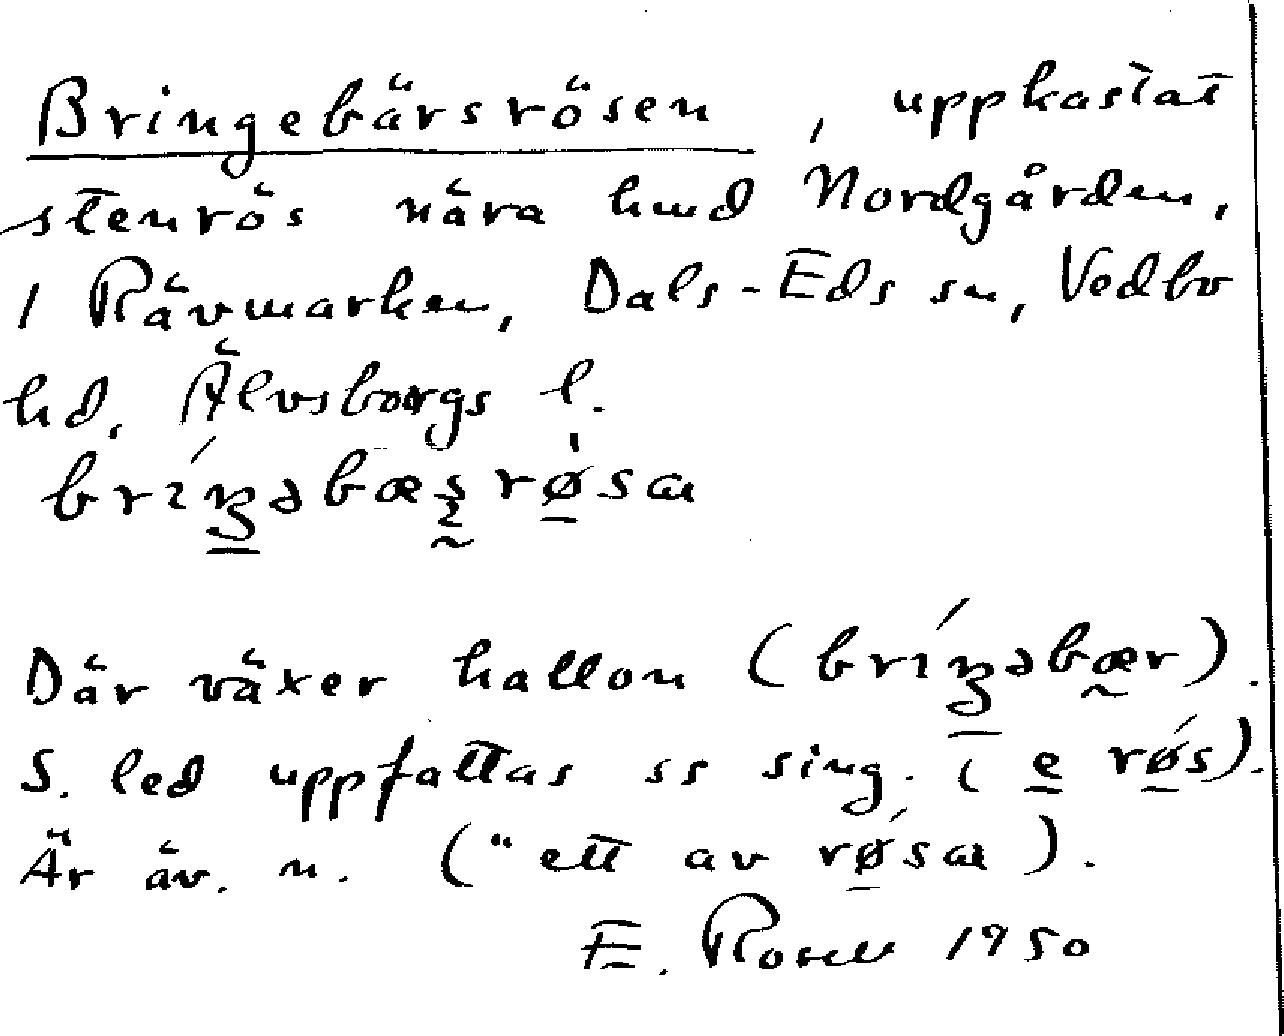 Bringebärsrösen, uppkastat
stenrös nära hmd Nordgården,
1 Rävmarken, Dals-Eds sn, Vedbo
hd, Älvsborgs l.
Där växer hallon
S. led uppfattas ss sing. (e røs).
Är äv. n. ("ett av røsa).
E. Rosell 1950